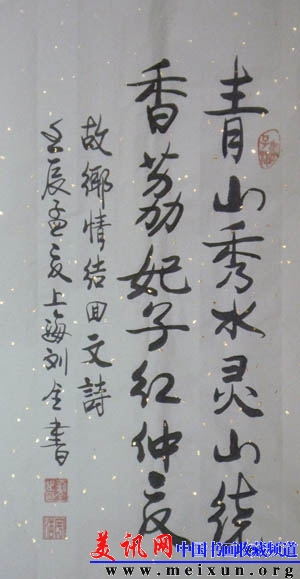 青山秀水灵山绕
香荔妃子红仲夏
故鄉情结回文詩
壬辰孟夏上海刘金書
美讯网 中国书画收藏频道
www.meixun.org